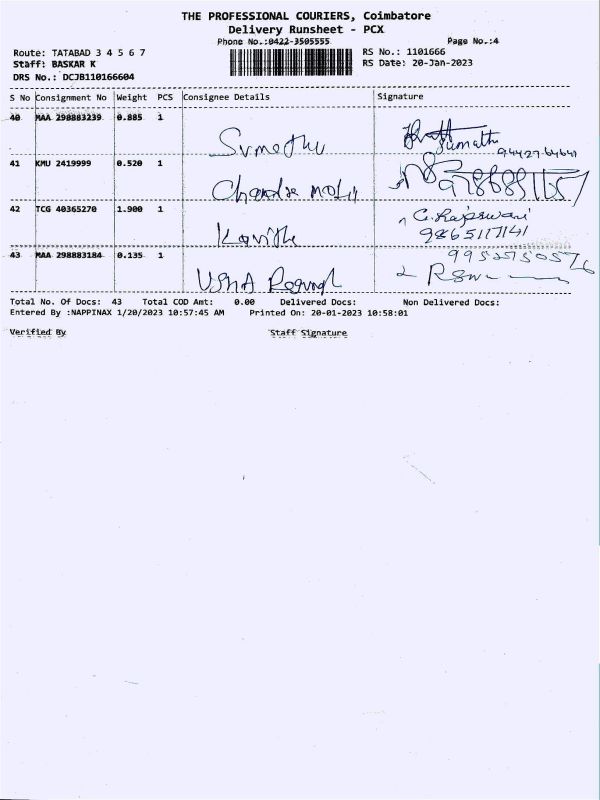 THE PROFESSIONAL COURIERS, Coimbatore
Delivery Runsheet - PCX
Phone No.:0422-3505555 Page No.:4
Route: TATABAD 3 4 5 6 7 RS No.: 1101666
Staff: BASKAR K RS Date: 20-Jan-2023
DRS No.: DCJB110166604
S No Consignment No Weight PCS Consignee Details Signature
40 MAA 298883239 0.885 1 Sumathi
94427-64641
41 KMU 2419999 0.520 1
42 TCG 40365270 1.900 1 G.Rajeswari
9865117141
43 MAA 298883184 0.135 1
Total No. Of Docs: 43 Total COD Amt: 0.00 Delivered Docs: Non Delivered Docs:
Entered By :NAPPINAX 1/20/2023 10:57:45 AM Printed On: 20-01-2023 10:58:01
Verified By Staff Signature